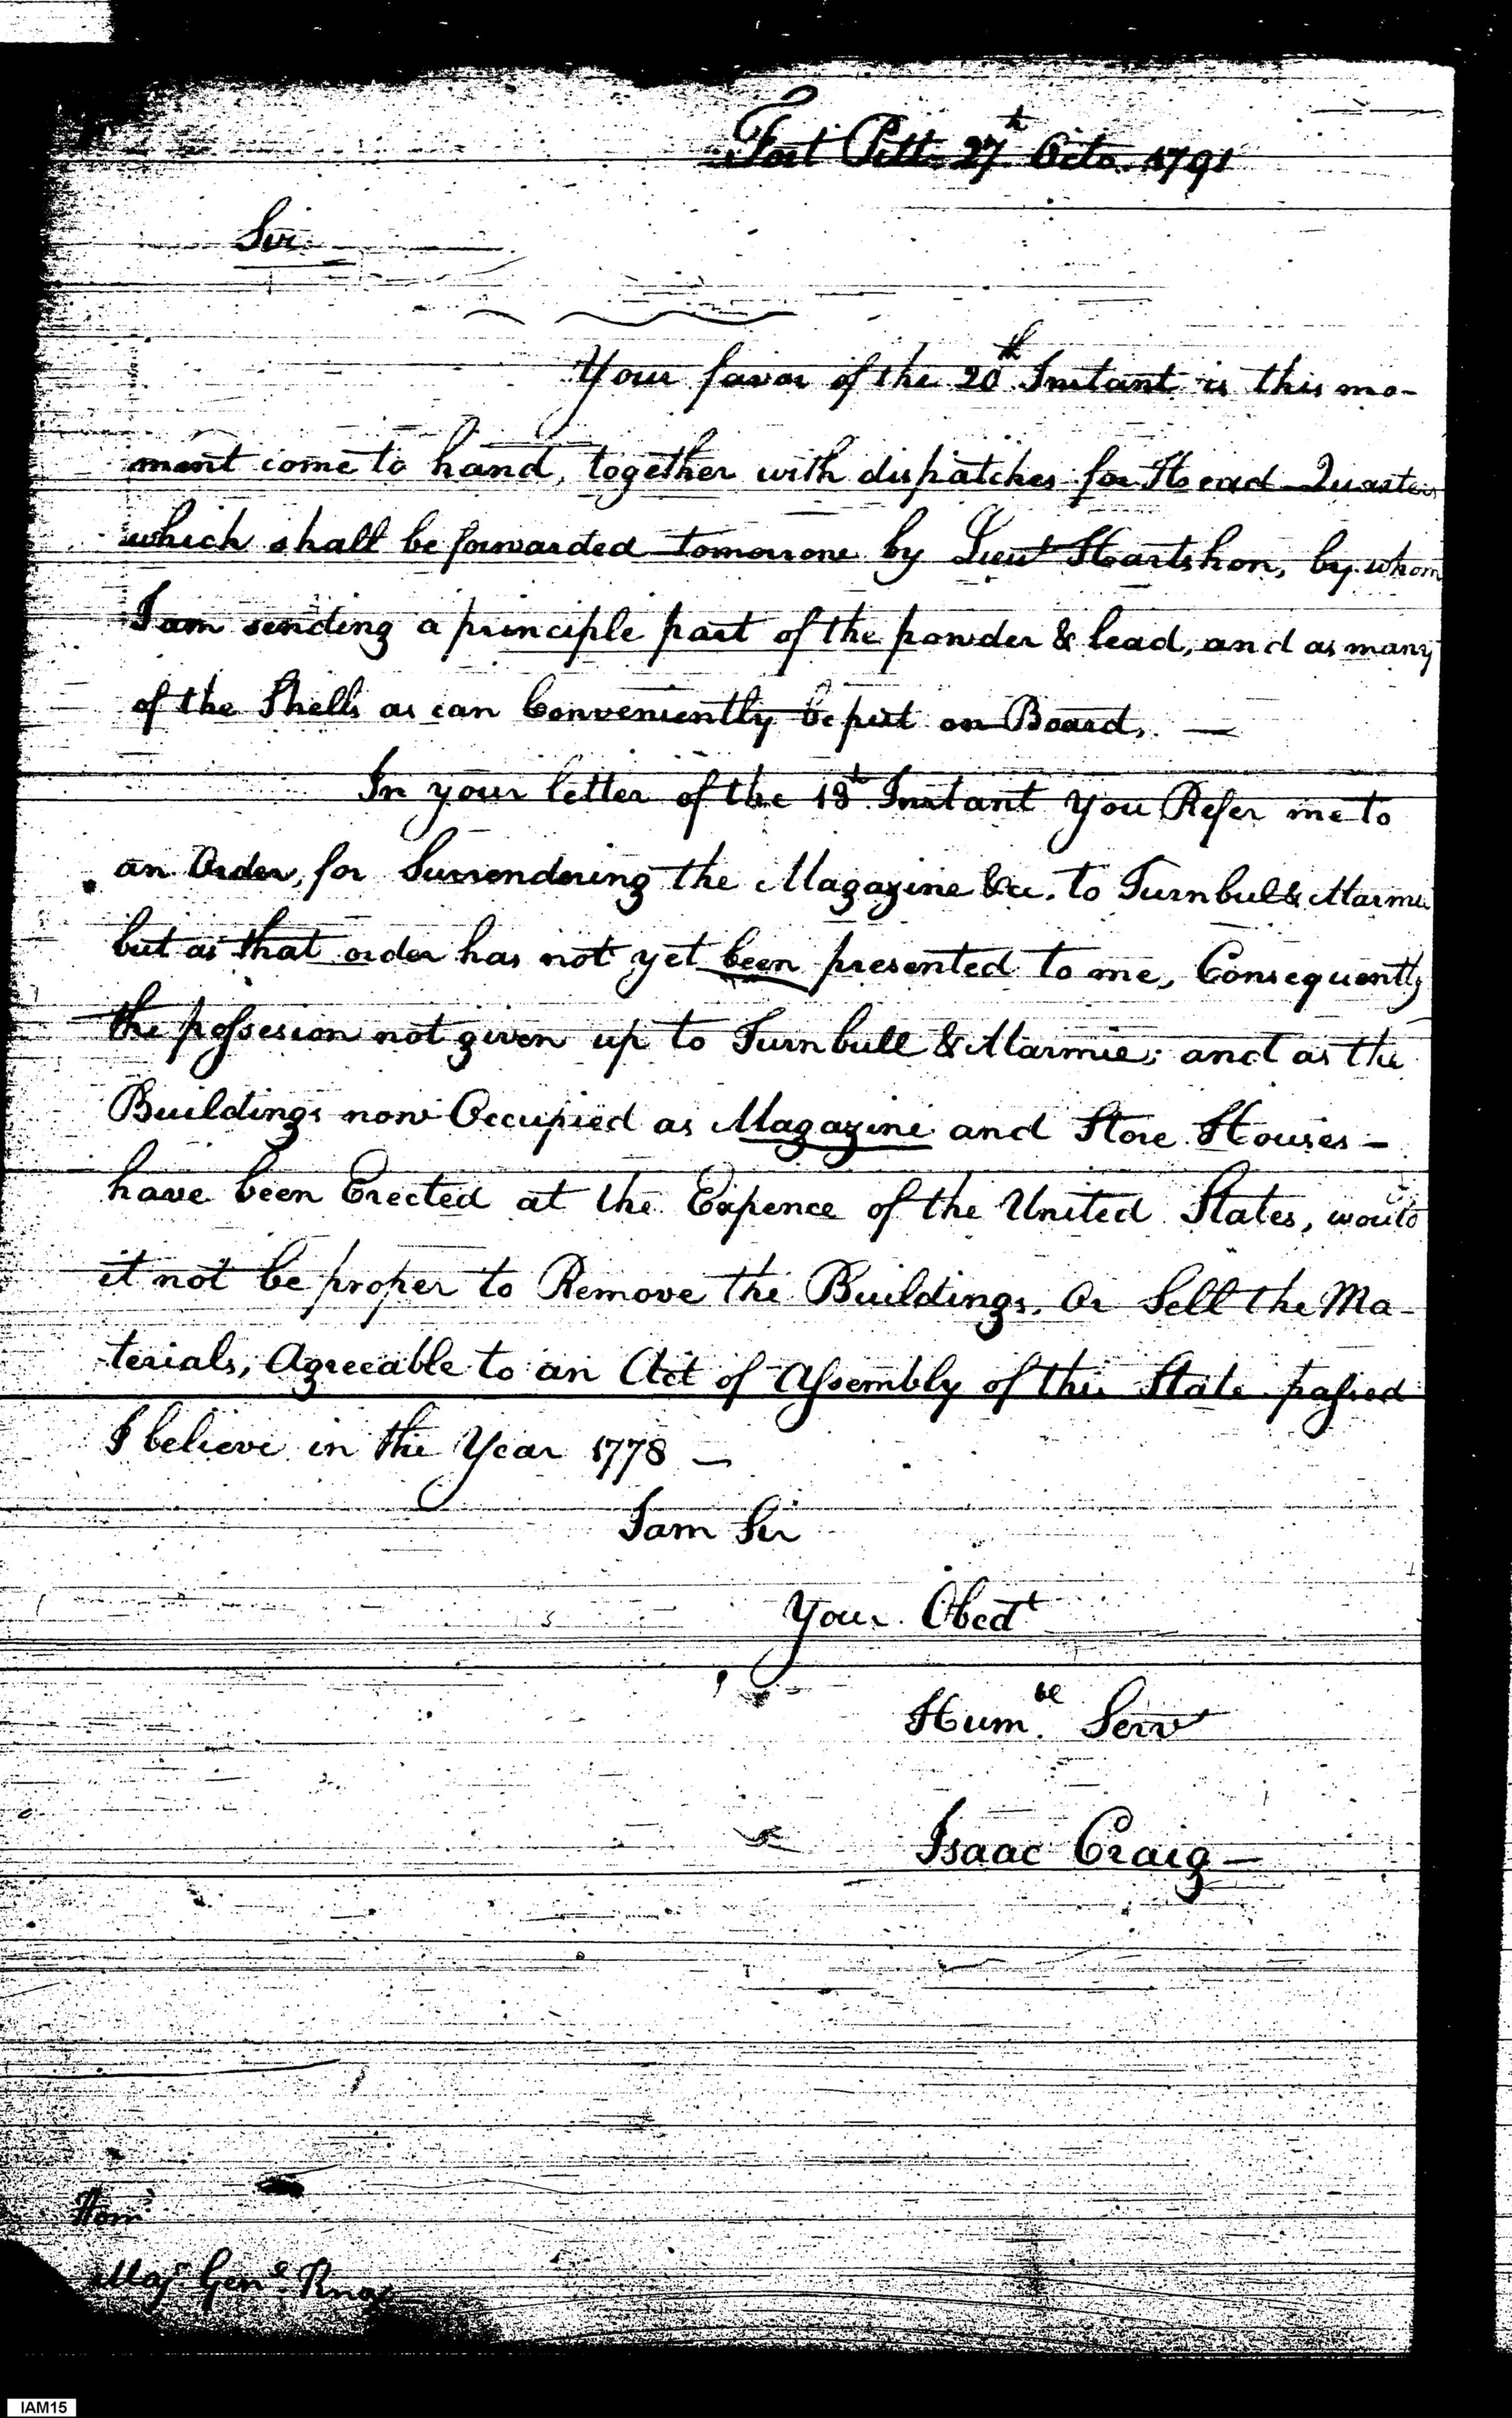 Fort Pitt 27th Octo. 1791
Sir
Your favor of the 20th Instant is this mo-
ment come to hand, together with dispatches for Head Quarters
which shall be forwarded tomorrow by Lieut Hartshon, by whom
I am sending a principle part of the powder & lead, and as many
of the Shells as can Conveniently be put on Board. —
In your letter of the 13th Instant you Refer me to
an Order, for Surrendering the Magazine &c. to Turnbul & Marmie
but as that order has not yet been presented to me, Consequently
the possesion not given up to Turnbull & Marmie; and as the
Buildings now Occupied as Magazine and Store Houses –
have been Erected at the Expence of the United States, would
it not be proper to Remove the Buildings. Or Sell the Ma-
terials, Agreeable to an Act of Assembly of this State passed
I believe in the Year 1778 —
I am Sir
Your Obedt
Humble Servt
Isaac Craig —
Honl
Majr Genl Knox
IAM15